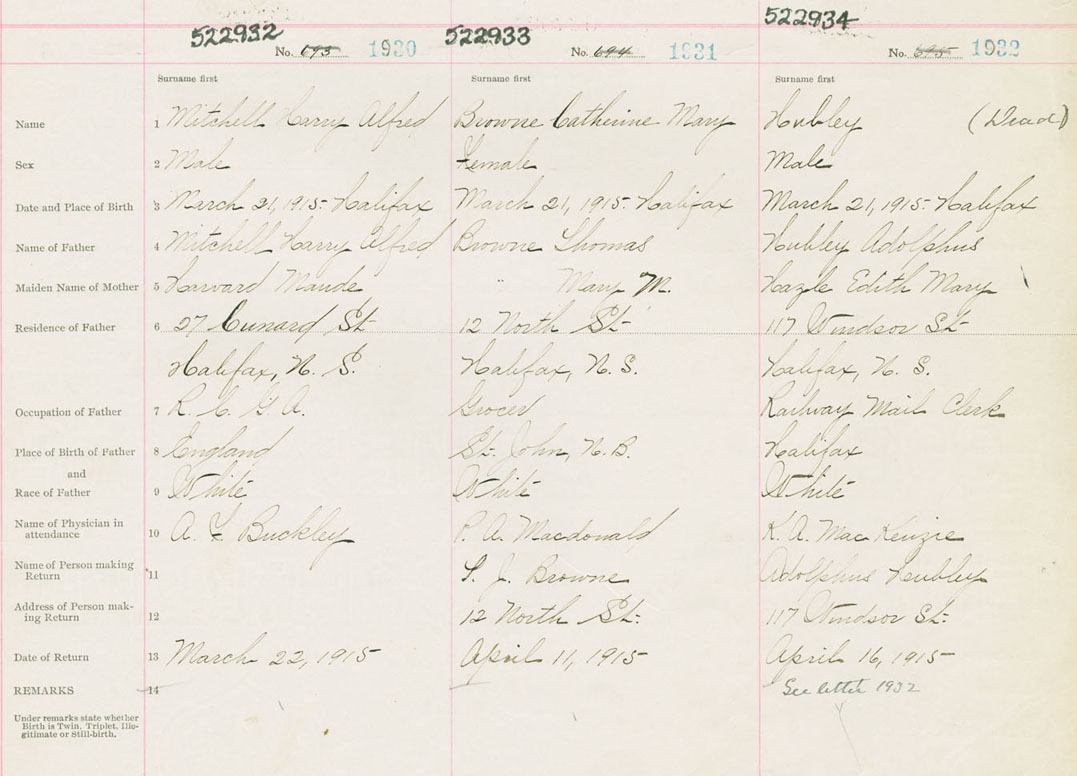 522932 522933 522934
No. 693 1930 No. 694 1931 No. 695 1932
Surname first Surname first Surname first
Name 1 Mitchell Harry Alfred Browne Catherine Mary Hubley (Dead)
Sex 2 Male Female Male
Date and Place of Birth 3 March 21, 1915 Halifax March 21, 1915 Halifax March 21, 1915 Halifax
Name of Father 4 Mitchell Harry Alfred Browne Thomas Hubley Adolphus
Maiden Name of Mother 5 Harvard Maude " Mary M. Hazle Edith Mary
Residence of Father 6 27 Cunard St 12 North St. 117 Windsor St.
Halifax, N. S. Halifax, N. S. Halifax, N. S.
Occupation of Father 7 R. C. G. A. Grocer Railway Mail Clerk
Place of Birth of Father 8 England St. John, N.B. Halifax
and
Race of Father 9 White White White
Name of Physician in
attendance 10 A. F. Buckley P. A. Macdonald K. A. MacKenzie
Name of Person making
Return 11 T. J. Browne Adolphus Hubley
Address of Person mak-
ing Return 12 12 North St. 117 Windsor St.
Date of Return 13 March 22, 1915 April 11, 1915 April 16, 1915
REMARKS 14 See letter 1932
Under remarks state whether
Birth is Twin, Triplet, Ille-
gitimate or Still-birth.